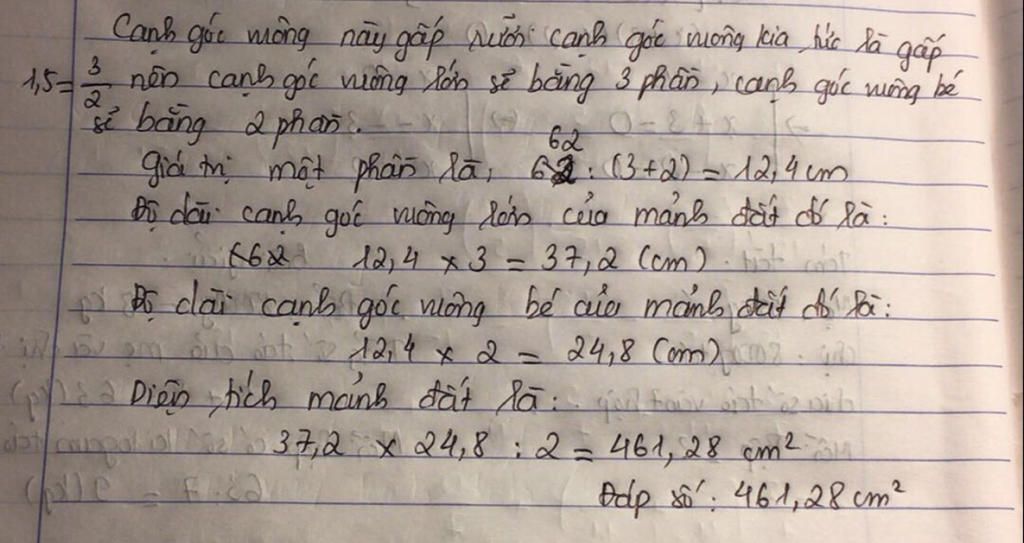 Cạnh góc vuông này gấp rưỡi cạnh góc vuông kia, tức là gấp
1,5 = 3/2 nên cạnh góc vuông lớn sẽ bằng 3 phần, cạnh góc vuông bé
sẽ bằng 2 phần.
62
Giá trị một phần là: 62 : (3+2) = 12,4 cm
Độ dài cạnh góc vuông lớn của mảnh đất đó là:
12,4 × 3 = 37,2 (cm)
Độ dài cạnh góc vuông bé của mảnh đất đó là:
12,4 × 2 = 24,8 (cm)
Diện tích mảnh đất là:
37,2 × 24,8 : 2 = 461,28 cm²
Đáp số: 461,28 cm²